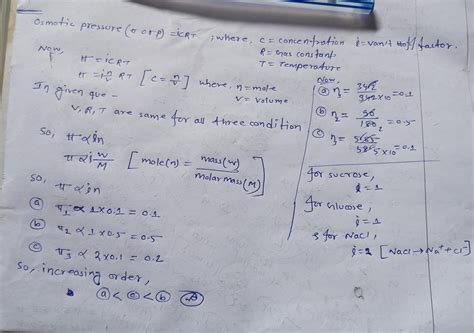 Osmotic pressure (σ or p) = iCRT ; where, C = concentration i = van't hoff factor.
R = Gas constant
T = Temperature
Now,
π = iCRT
π = i n/V RT [C = n/V] where, n = mole
V = volume
In given que -
V, R, T are same for all three condition
So, π ∝ in
π ∝ i W/M [mole(n) = mass(W)/molar mass(M)]
So,
π ∝ in
(a) π1 ∝ 1×0.1 = 0.1
(b) π2 ∝ 1×0.5 = 0.5
(c) π3 ∝ 2×0.1 = 0.2
So, increasing order,
(a) < (c) < (b)
Now,
(a) η = 342/342×10 = 0.1
(b) η2 = = 0.5
(c) η3 = = 0.1
for sucrose,
i = 1
for Glucose,
i = 1
& for NaCl,
i = 2 [NaCl → Na+ + Cl-]